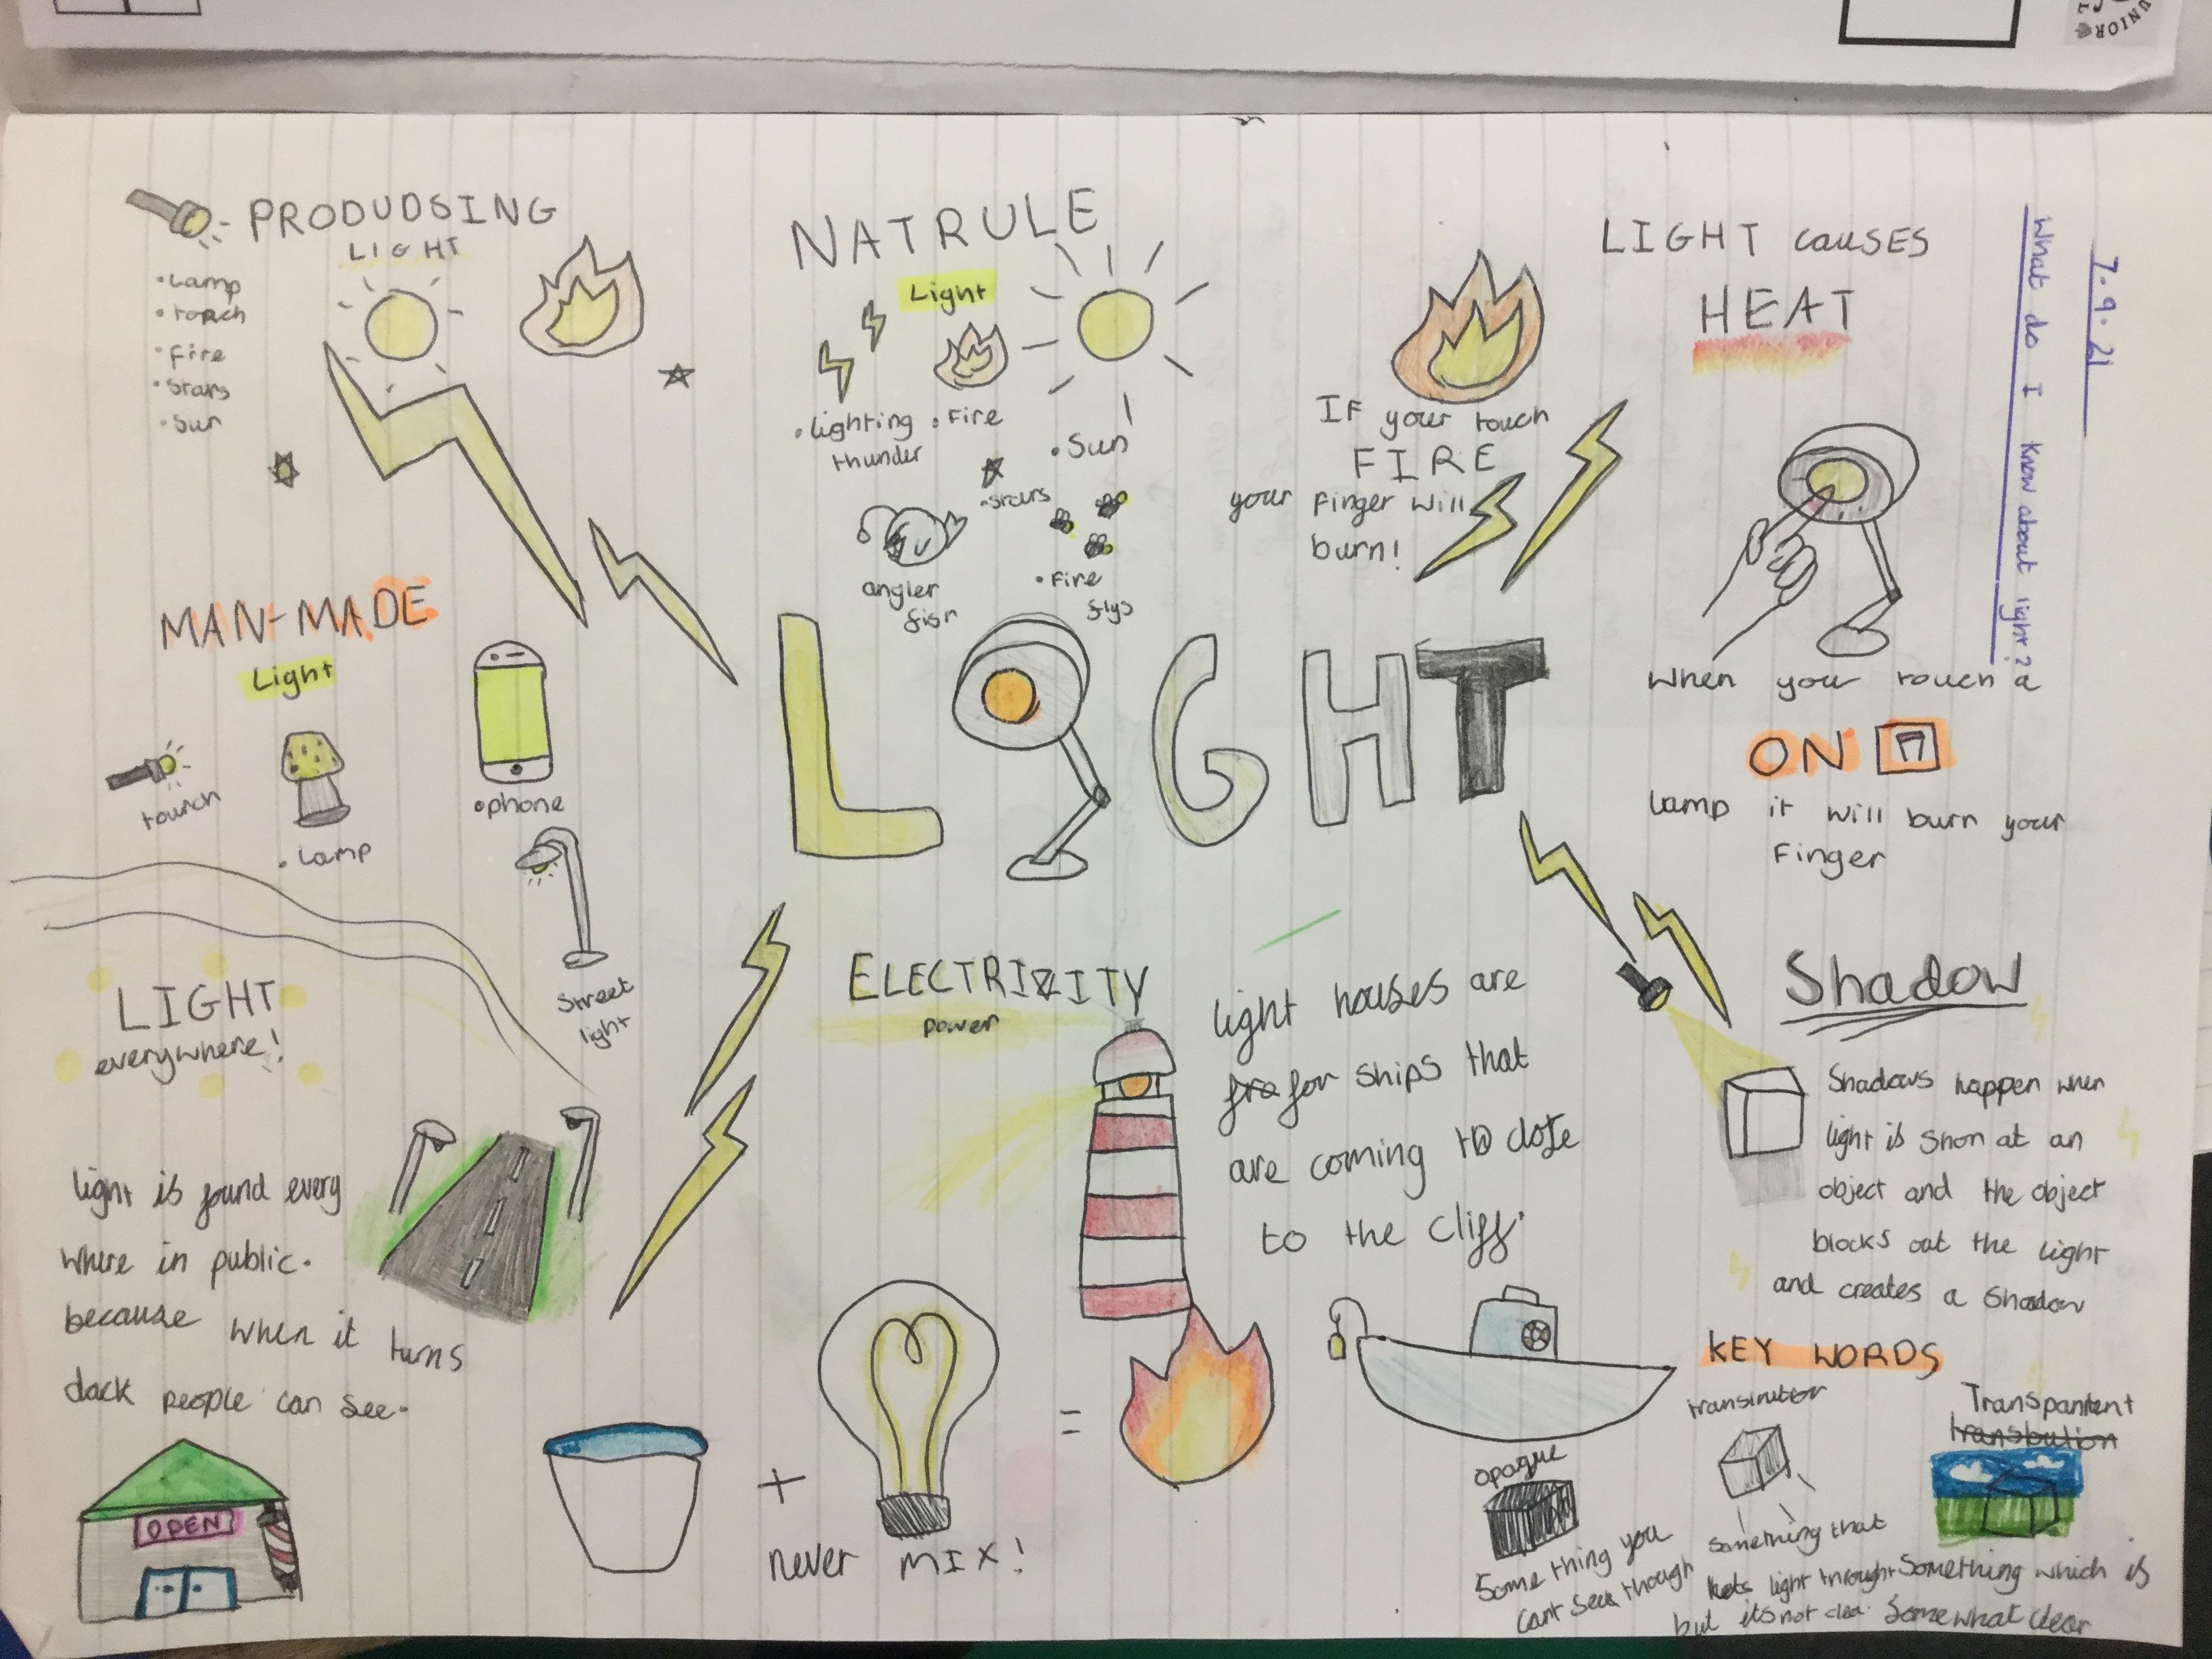 UNIOR
7.9.21
What do I know about light?
PRODUDSING
LIGHT
• Lamp
• torch
• Fire
• Stars
• Sun
NATRULE
Light
• lighting
thunder
• Fire
• Sun
• Stars
angler
fish
• Fire
flys
LIGHT CAUSES
HEAT
IF your touch
FIRE
your Finger will
burn!
When you touch a
ON
Lamp it will burn your
Finger
MAN-MADE
Light
tourch
• Lamp
• phone
Street
light
LIGHT
LIGHT
everywhere!
light is found every
where in public.
because when it turns
dark people can see.
OPEN
ELECTRIZITY
power
+
=
never MIX!
light houses are
fro for ships that
are coming to close
to the cliff.
Shadow
Shadows happen when
light is shon at an
object and the object
blocks out the light
and creates a Shadow
KEY WORDS
opaque
Something you
cant see though
Something that
lets light throught
but its not clea.
Transparitent
transbution
Something which is
Somewhat clear